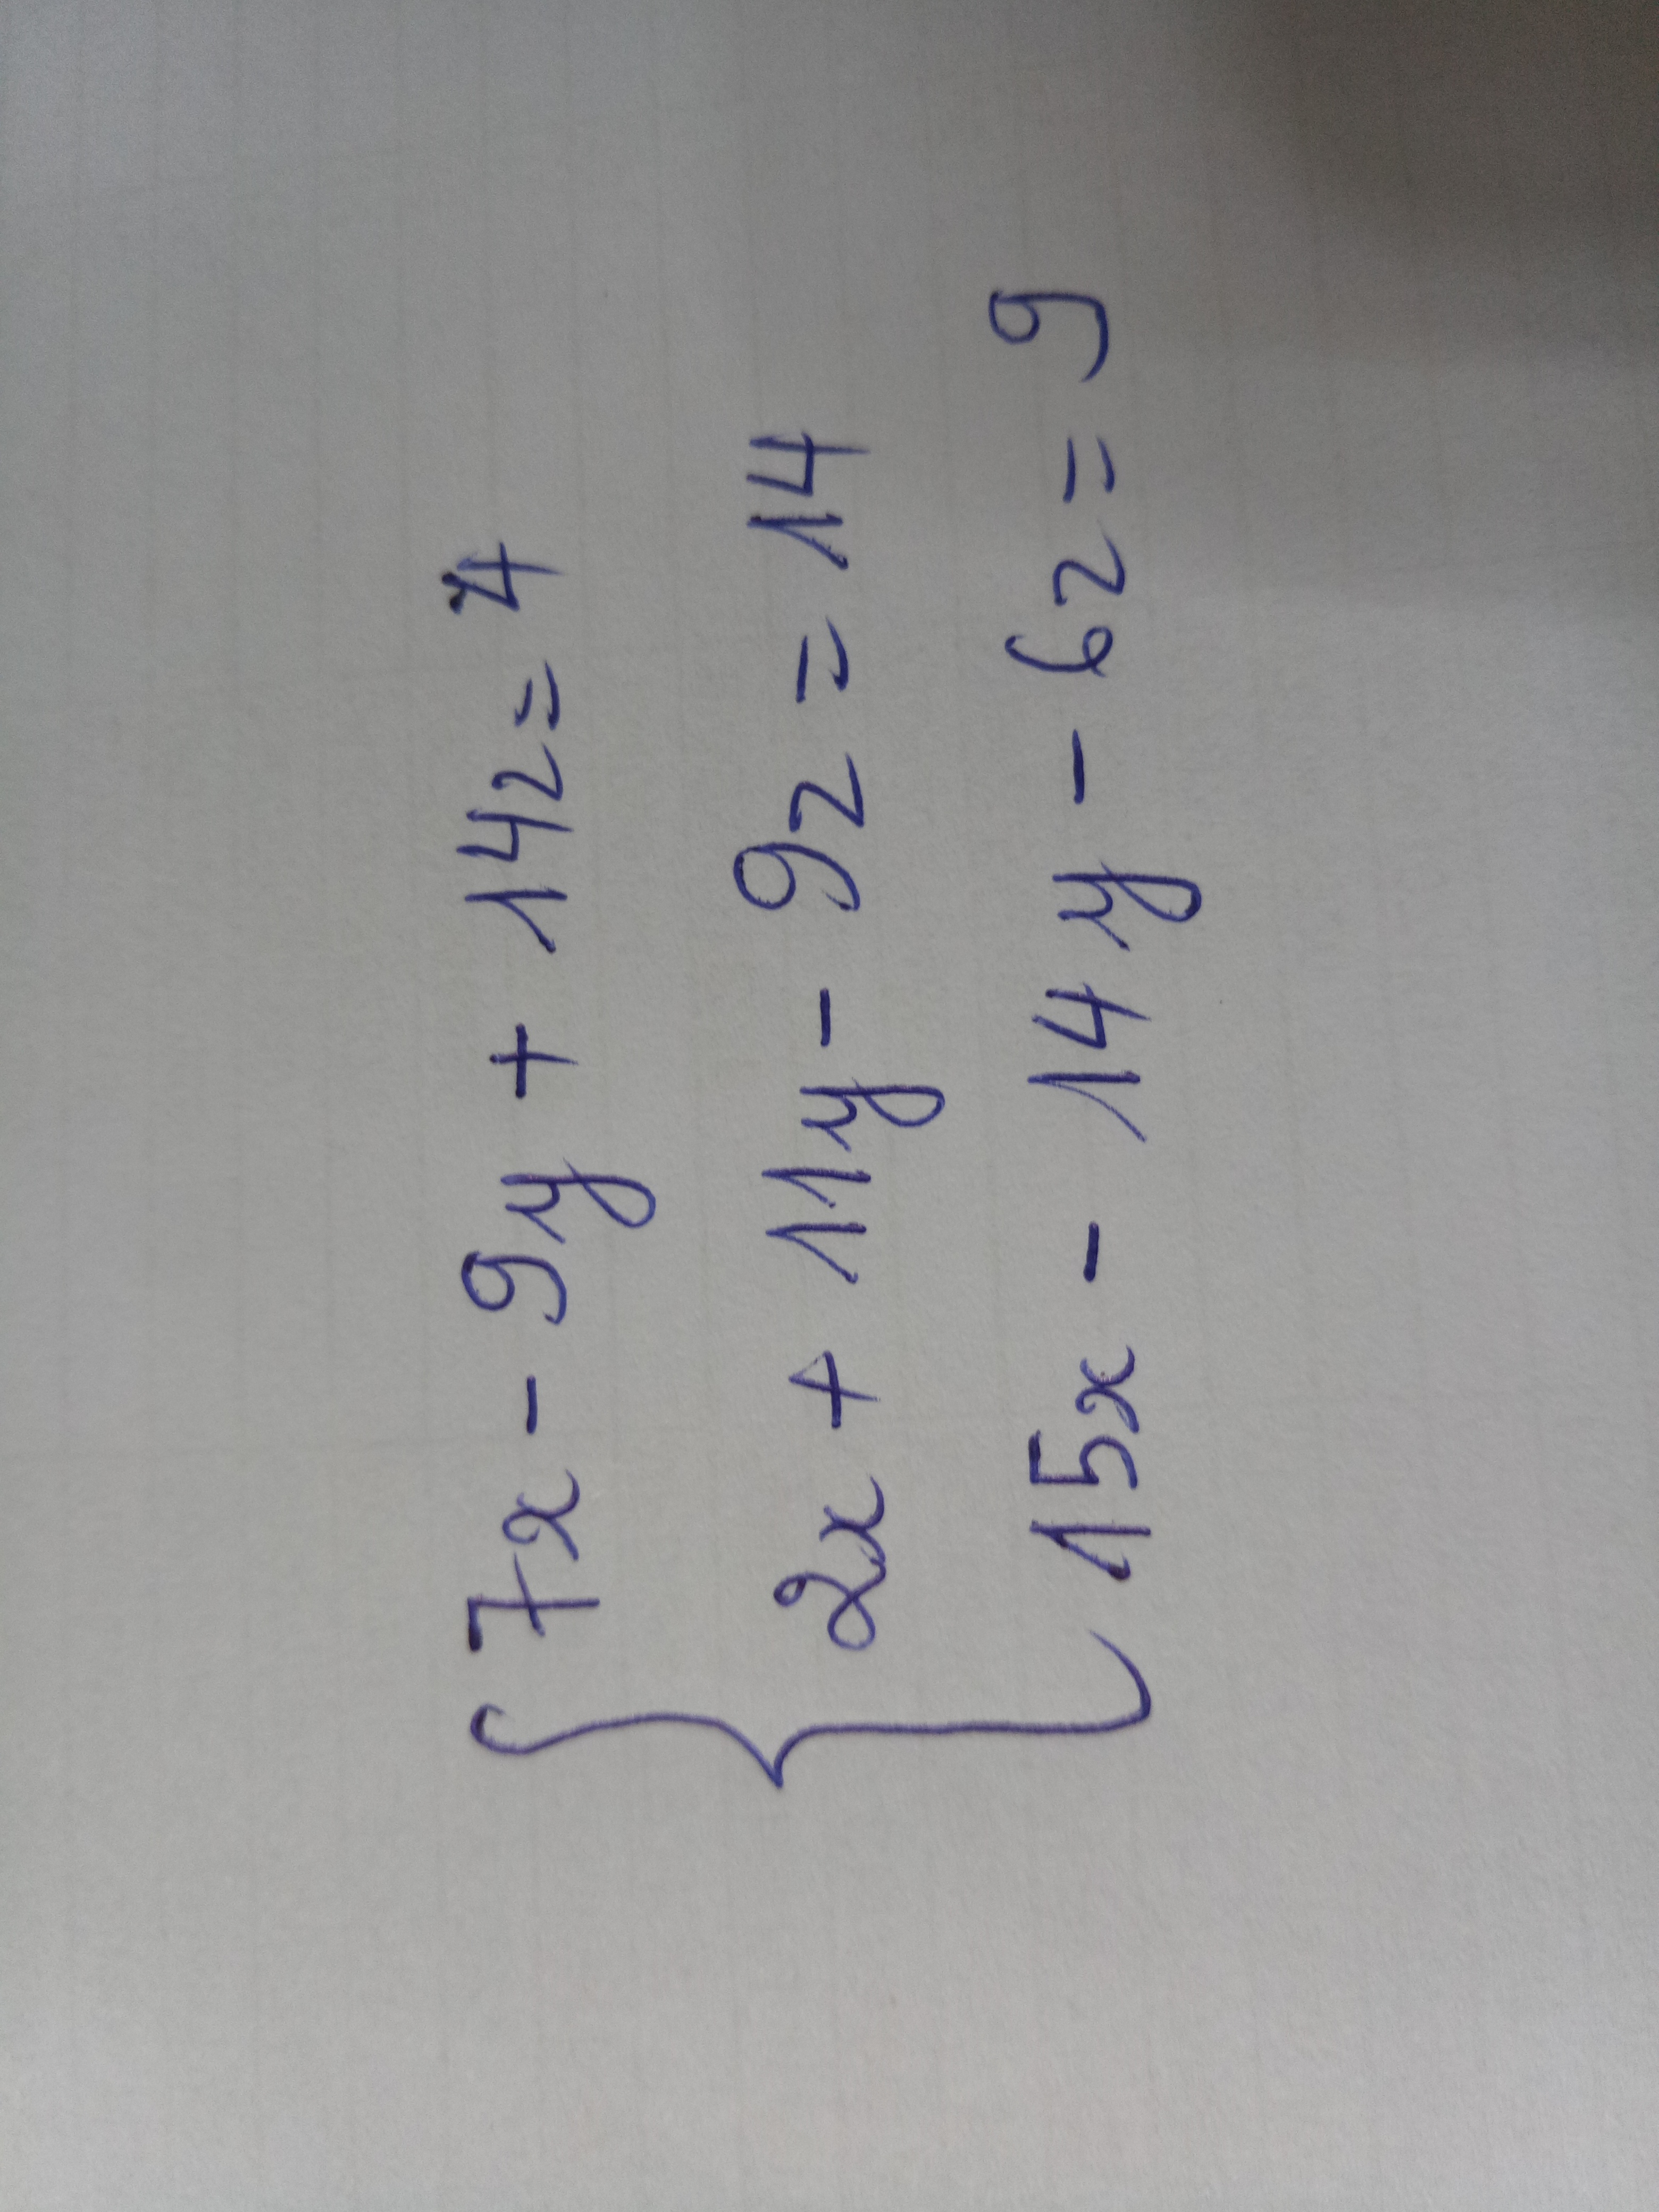 7x - 9y + 14z = 4
2x + 11y - 9z = 14
15x - 14y - 6z = 9